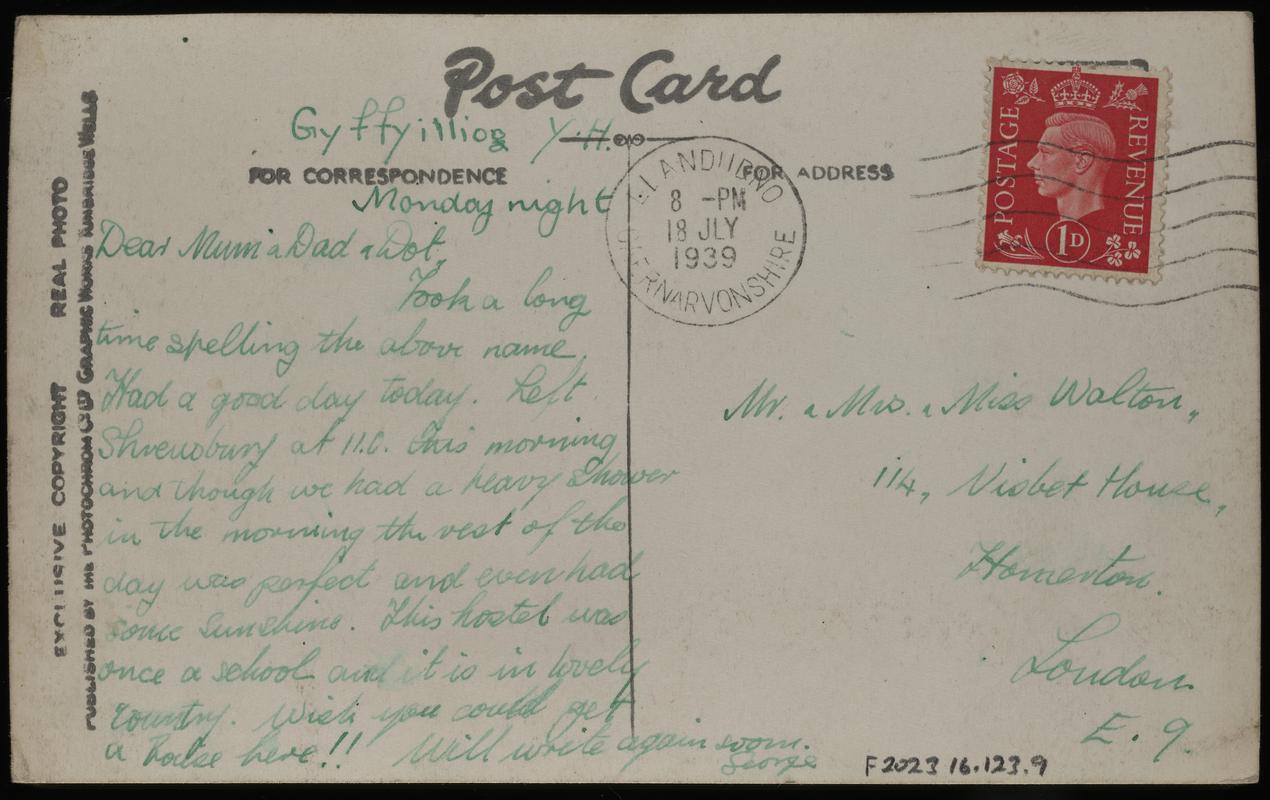 Post Card
Gyffyilliog Y.H.
FOR CORRESPONDENCE
Monday night
Dear Mum & Dad & Dot,
Took a long
time spelling the above name.
Had a good day today. Left
Shrewsbury at 11.0. this morning
and though we had a heavy shower
in the morning the rest of the
day was perfect and even had
some sunshine. This hostel was
once a school and it is in lovely
country. Wish you could get
a house here!! Will write again soon.
George
FOR ADDRESS
LLANDUDNO
8 -PM
18 JLY
1939
CAERNARVONSHIRE
POSTAGE
REVENUE
1D
Mr. & Mrs. & Miss Walton,
114, Nisbet House,
Homerton.
London
E.9.
F2023 16.123.9
EXCLUSIVE COPYRIGHT REAL PHOTO
PUBLISHED BY THE PHOTOCHROM CO LTD GRAPHIC WORKS TUNBRIDGE WELLS